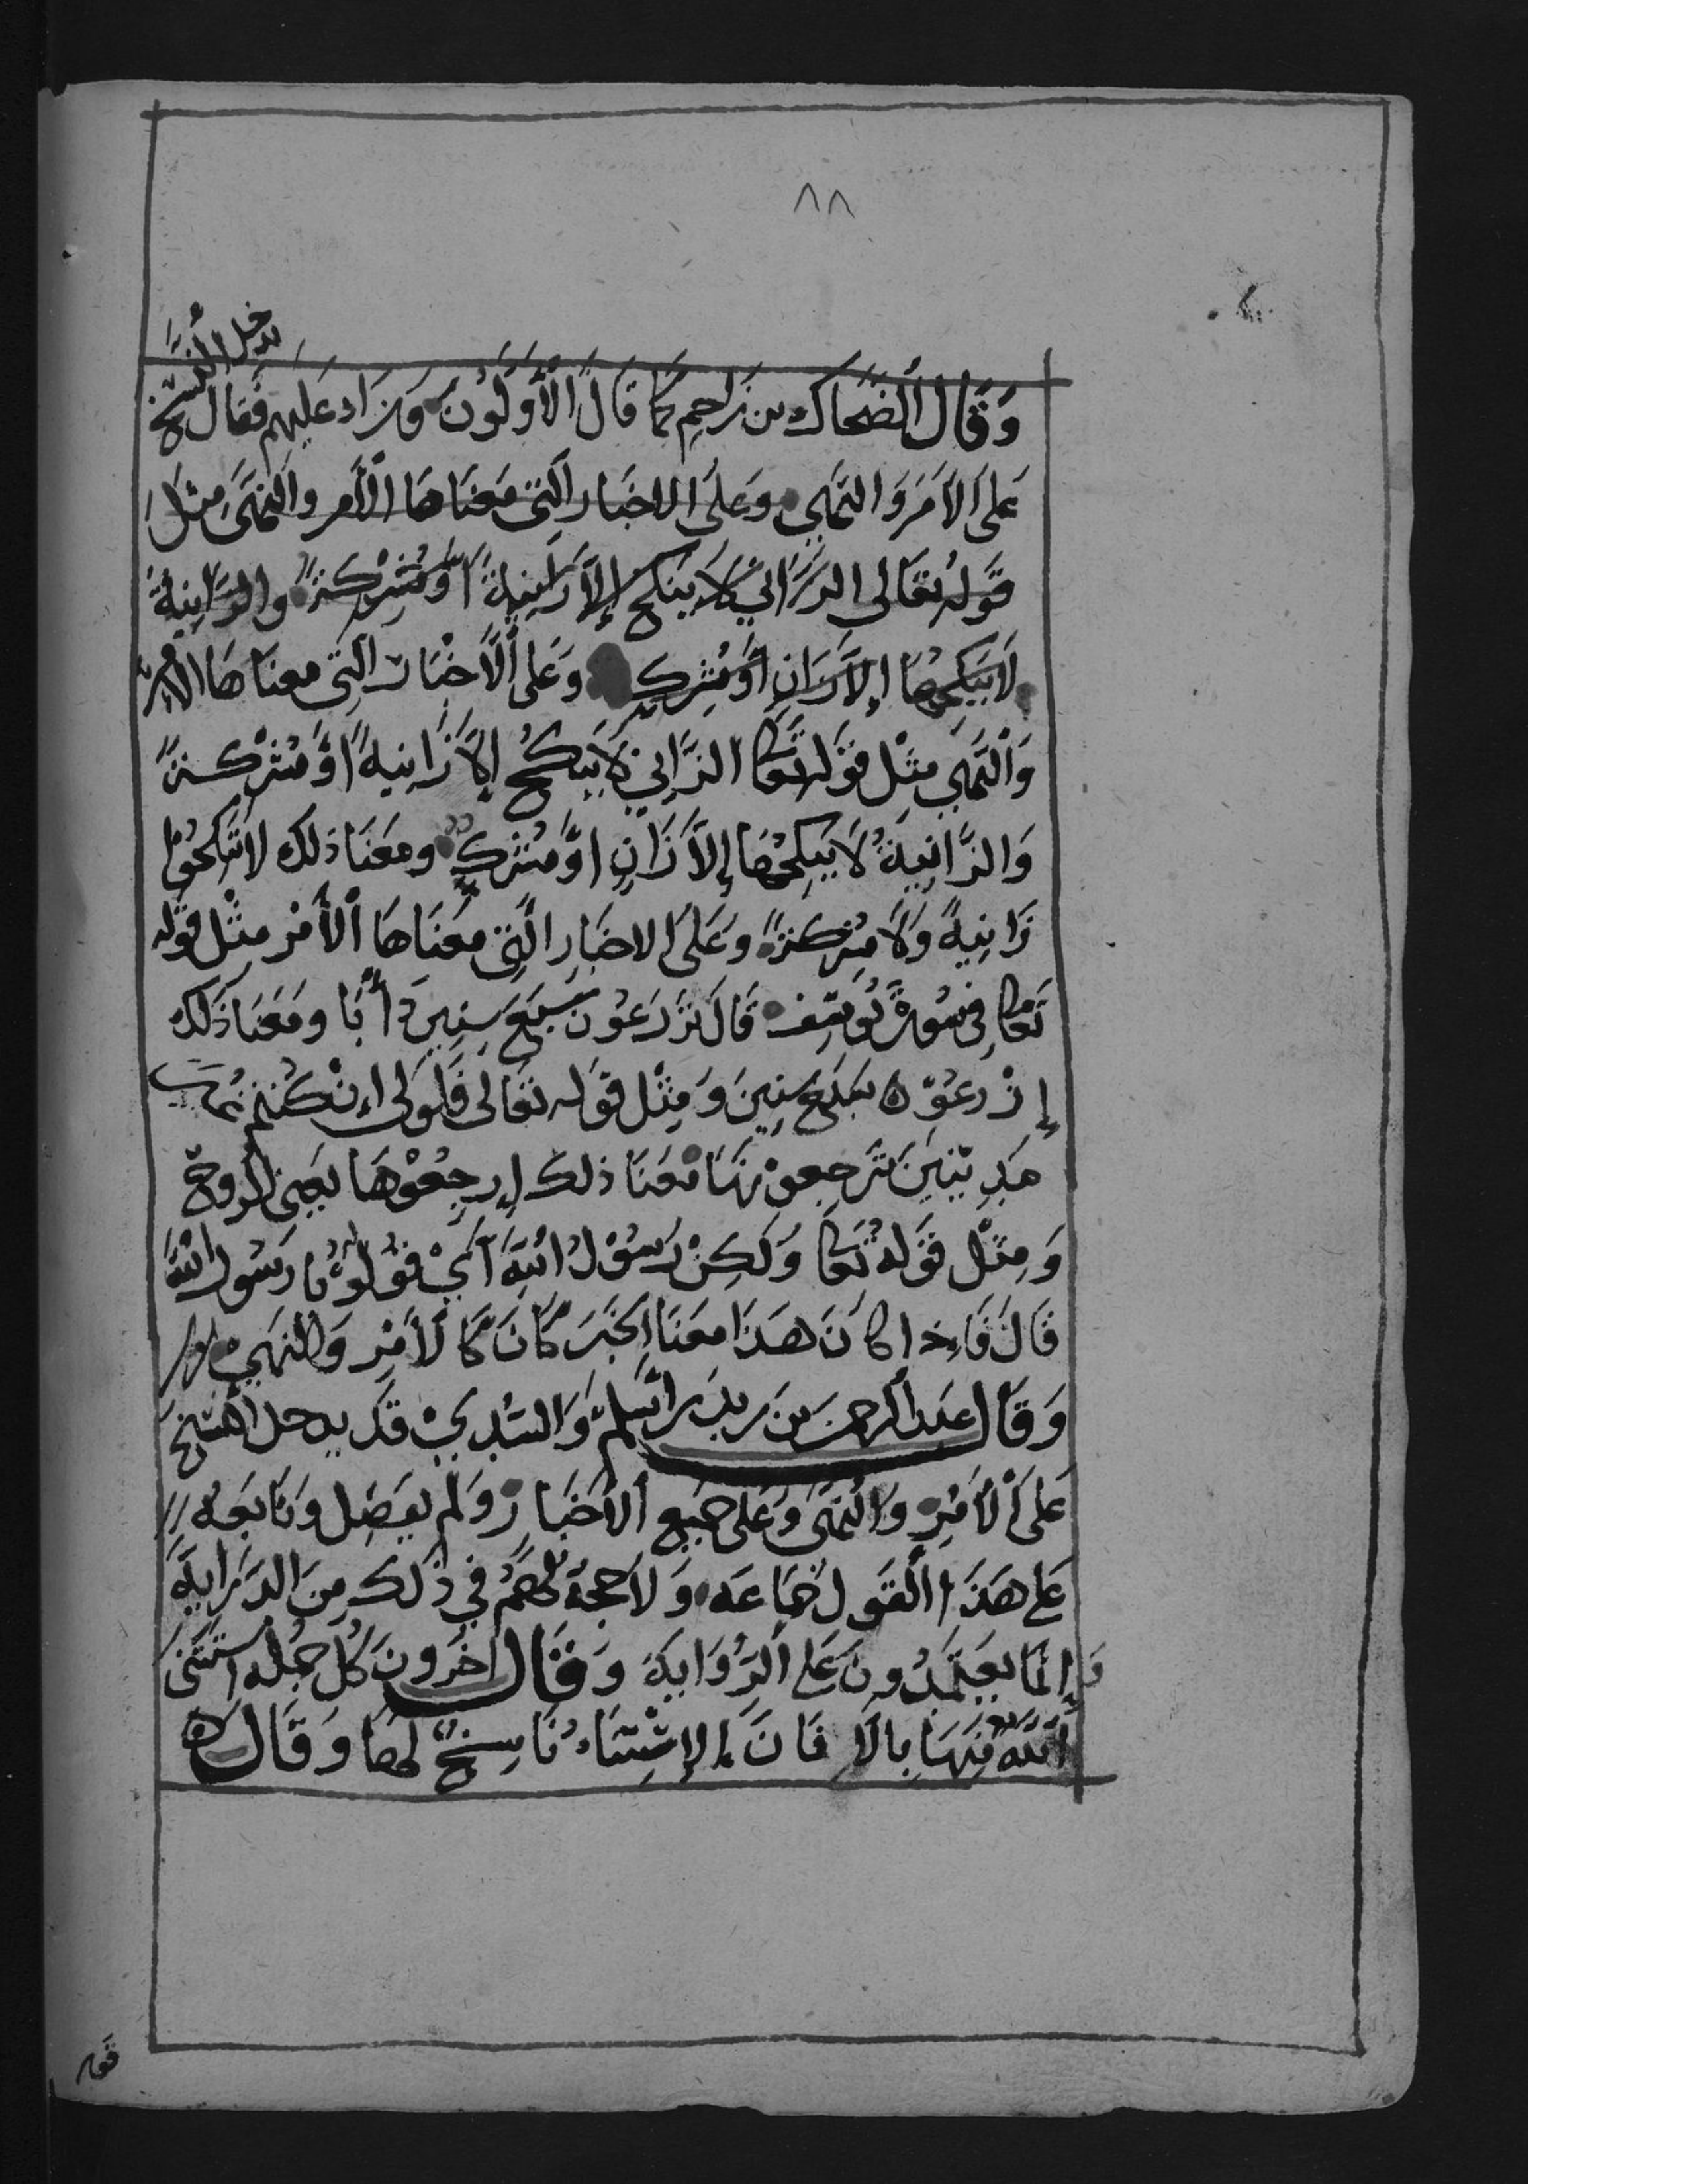 ٨٨
يدخل النسخ
وَقَالَ الضَّحَاك بن مزاحِم كمَا قَالَ الأَوَّلُونَ وَزَاد عَليْهِم فقال
عَلىَ الأَمَر وَالنَّهْي وَعَلىَ الاخبَار الَّتِي مَعْنَاهَا الأَمر والنَّهَى مثل
قَوْلُه تَعَالى الزَّانيْ لَا يَنكحُ إلاَّ زَانِيةً أَوْ مُشْرِكَةً والزَّانِيَةُ
لَا يَنكِحُهَا إلاَّ زَانٍ أَوْ مُشْرِكٌ وَعَلى الْأَخْبَار الَّتِي معنَاهَا الامر
وَالنَّهْي مِثْل قوْلِه تَعَا الزَّانِي لَا يَنكحُ إلاَّ زَانِيةً أَوْ مُشْرِكةً
وَالزَّانِيَةُ لَا يَنكِحُهَا إلاَّ زَانٍ أَوْ مُشْرِكٌ ومَعْنَا ذلك لا تَنكحُوا
زَانِيةً وَلَا مشركةً وَعَلىَ الاخبَارِ الَّتِي معْنَاهَا الأَمْر مِثْل قوْله
تَعَا فِي سُورَة يُوسُف قَالَ تَزْرَعُونَ سَبْعَ سِنِينَ دَأَبًا ومَعْنَا ذَلك
إزْرعُوْا سَبْعَ سنِينَ وَمِثْل قَوْله تَعَالى فَلَولَا اِنْ كُنتُم غَيْرَ
مَدِينِينَ تَرجِعونهَا مَعْنَا ذلك إرجِعُوْهَا يَعِني الروحَ
وَمِثْل قَوْلهُ تَعَا وَلَكِنْ رَسُوْلَ اللَّهِ أَيْ قوْلوْا يا رَسُول اللَّه
قَالَ فَاِذا كانَ هَذَا مَعْنَا الخَبَر كَانَ كَالأَمْرِ وَالنهي
وَقَال عَبد الرحمن بن زيد بن اسْلم وَالسُّدِيْ قَد يدخل النسْخ
عَلىَ الْأَمْرِ وَالنَّهَى وَعَلى جَميْع الأَخبَار وَلم يفصِل وتَابَعَه
عَلى هَذَا القَول جَمَاعَه وَلَا حجة لهُمْ فِي ذَلك مِنَ الدِّرَايَةِ
وَإنمَا يَعْتَمِدُونَ عَلى الرِّوَايَة وَقَال اخَرُونَ كُلُّ جُمله اسْتَثْنَى
اللَّهُ مِنْهَا بالَّا فَانَ الإسْتِثنَاءُ نَاسِخٌ لهَا وَقَال